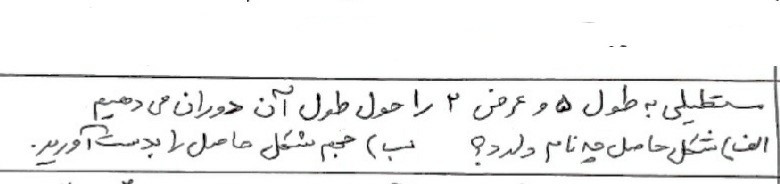 مستطیلی به طول ۵ و عرض ۲ را حول طول آن دوران می دهیم
الف) شکل حاصل چه نام دارد؟ ب) حجم شکل حاصل را بدست آورید.